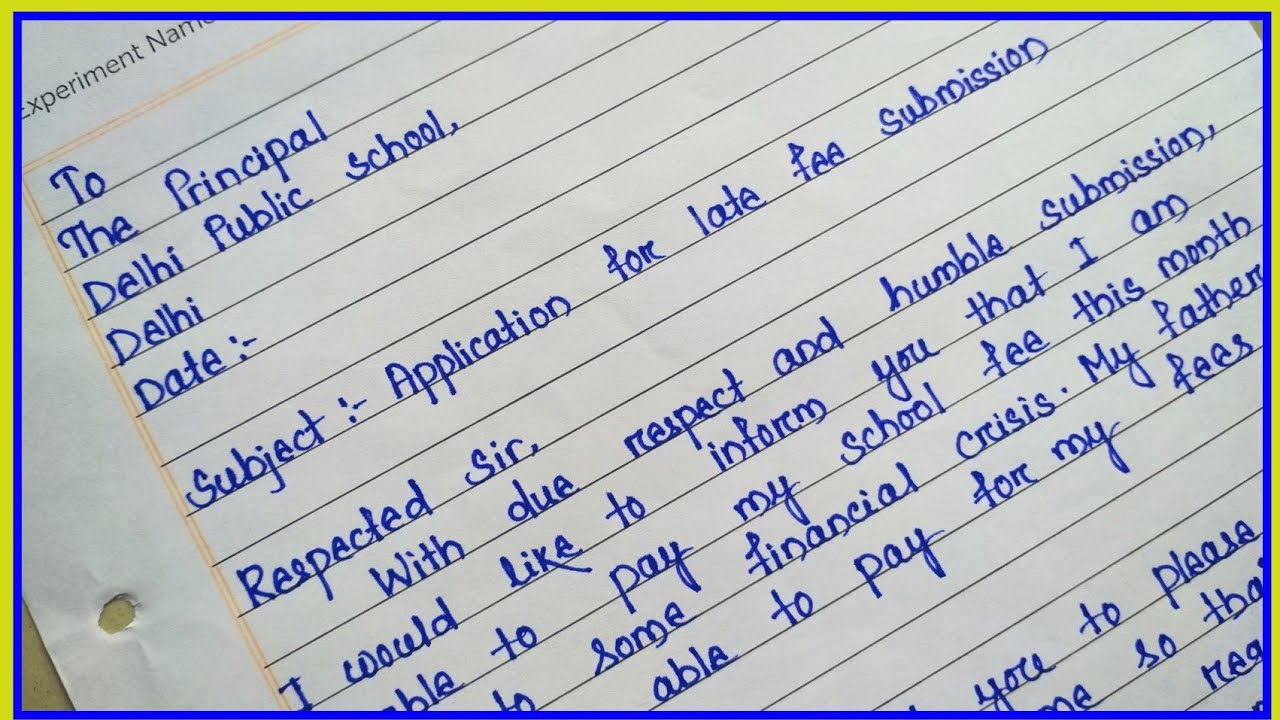 Experiment Name
To
The Principal
Delhi Public School,
Delhi
Date :-
Subject :- Application for late fee submission
Respected Sir,
With due respect and humble submission,
I would like to inform you that I am
to pay my school fee this month
some financial crisis. My father
able to pay for my fees
you to please
so